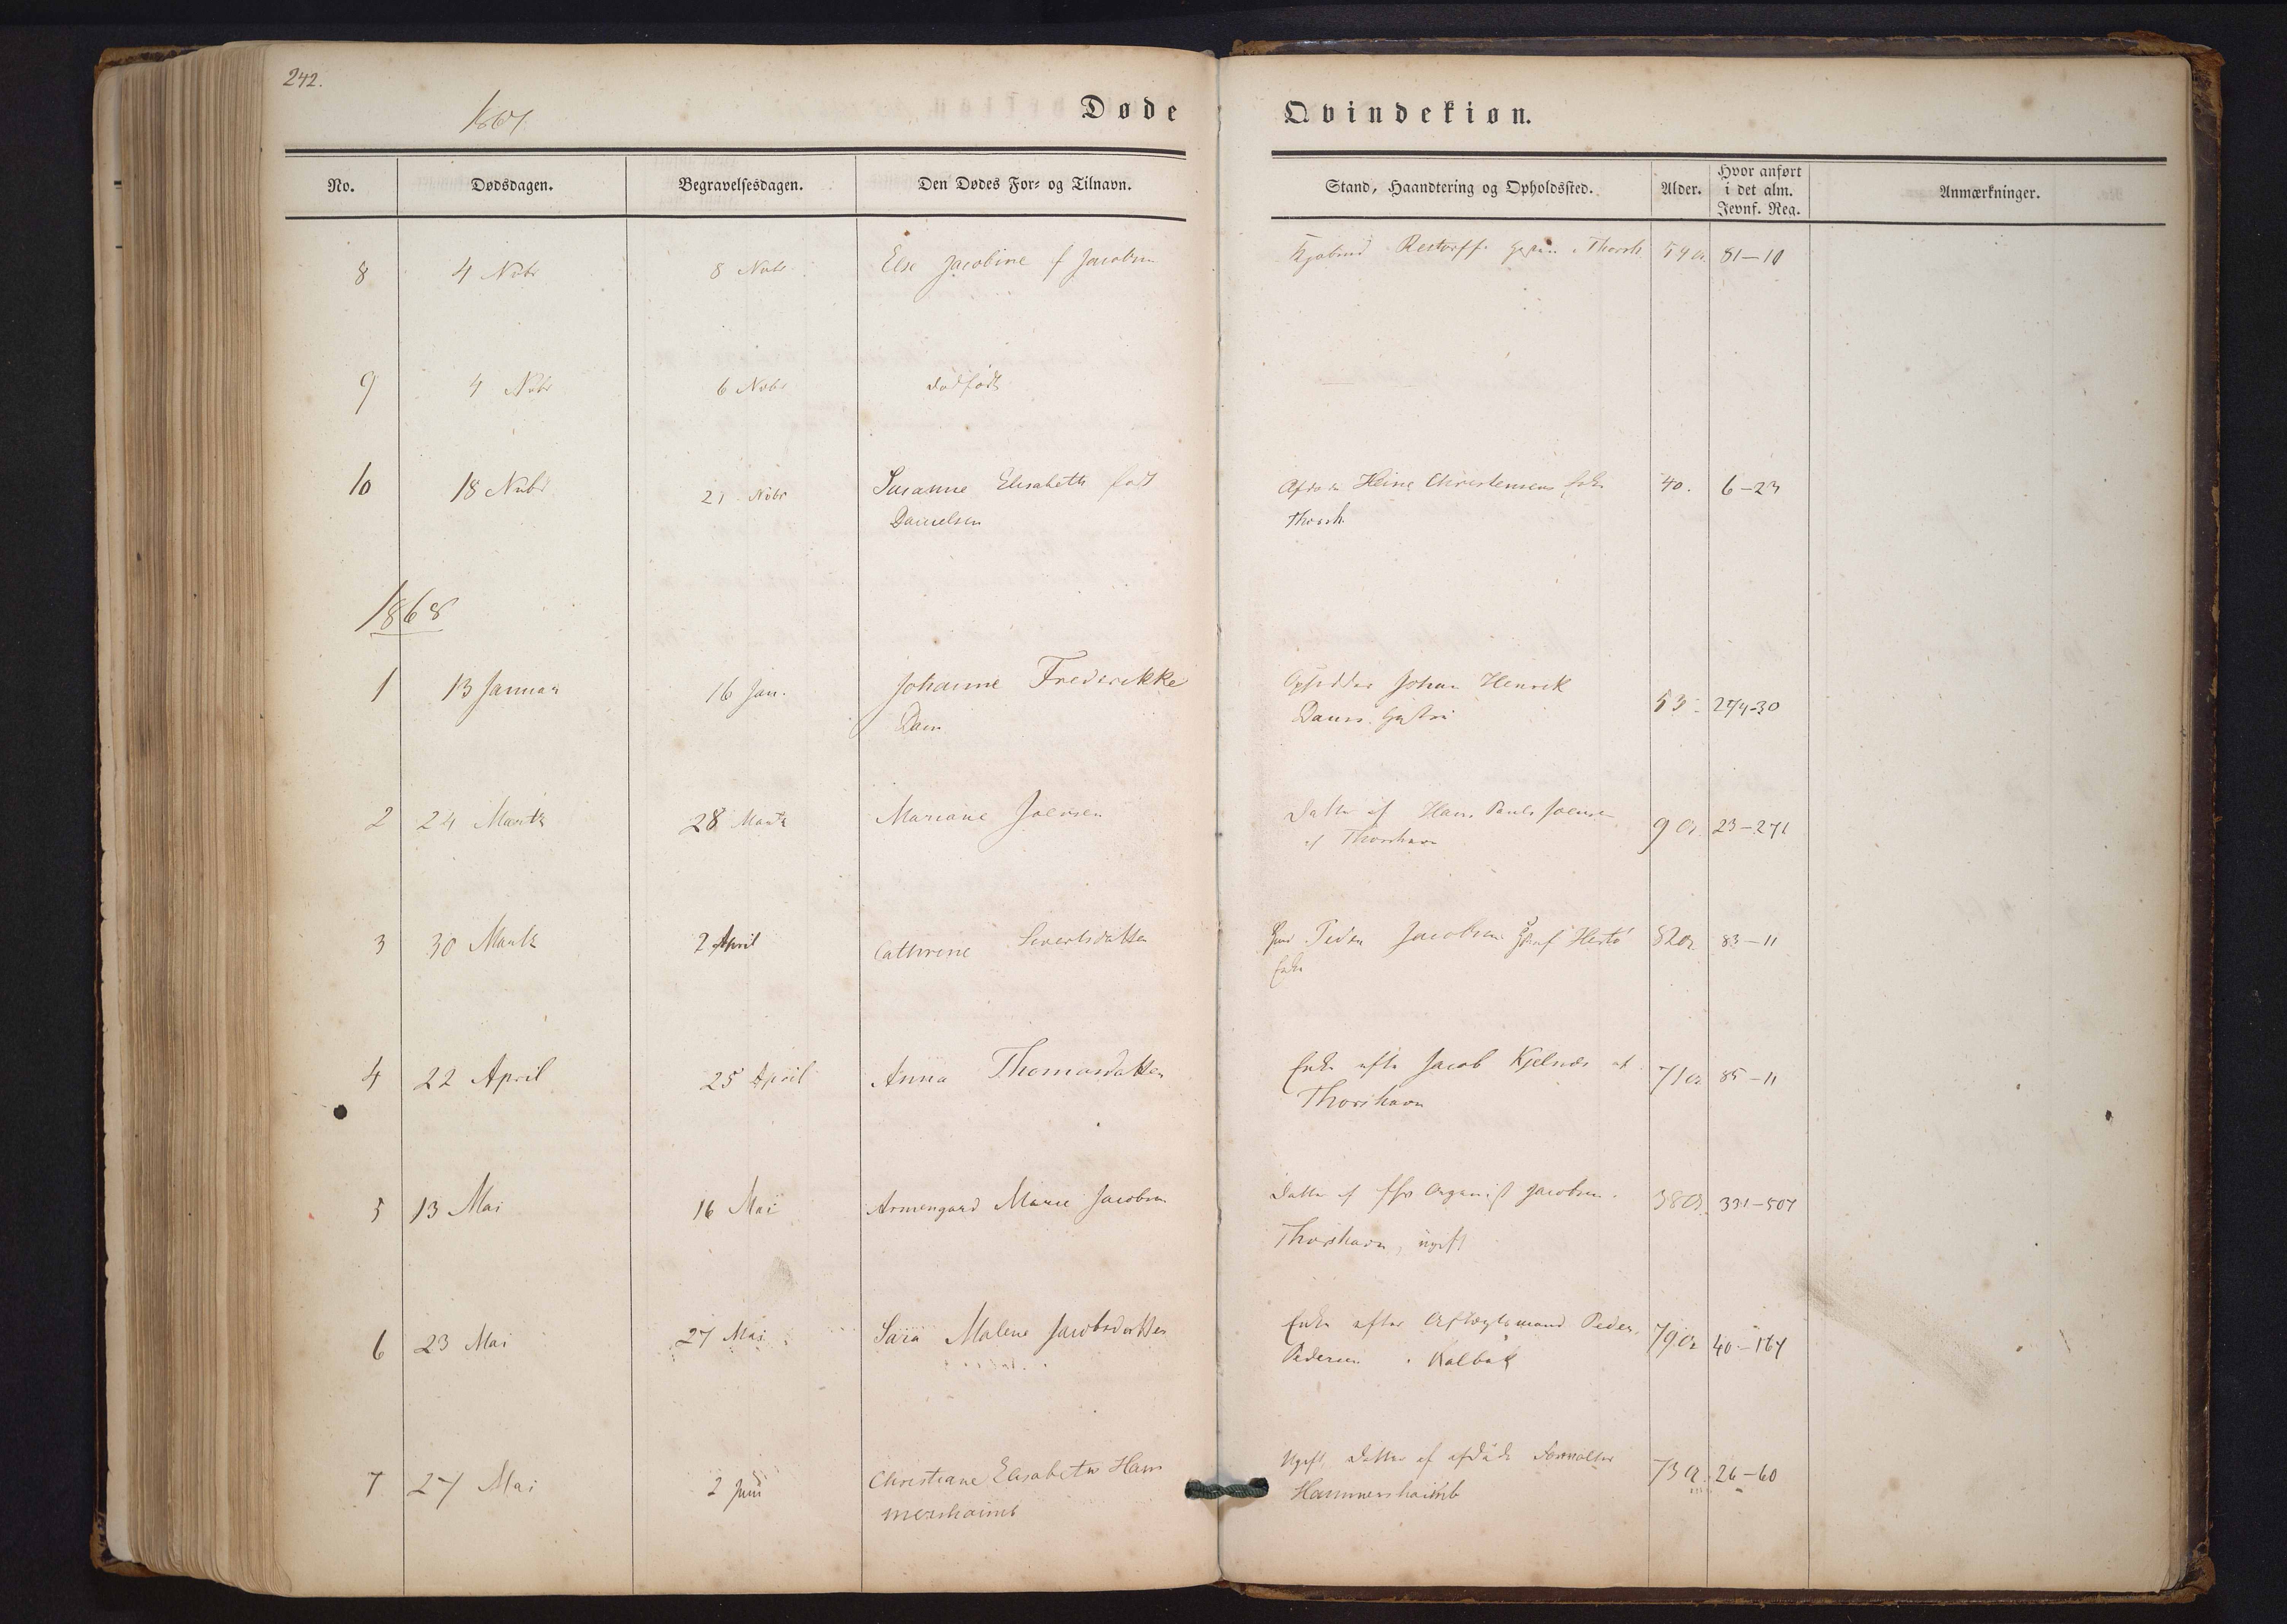 242.
1867
Døde Qvindekiøn.
No. Dødsdagen. Begravelsesdagen. Den Dødes For- og Tilnavn. Stand, Haandtering og Opholdssted. Alder. Hvor anført i det alm. Jevnf. Reg. Anmærkninger.
8 4 Nvbr 8 Nvbr Else Jacobine f Jacobsen Restorff Thorsh. 54 81-10
9 4 Nvbr 6 Nvbr dødfødt
10 18 Nvbr 21 Nvbr Susanne Elisabeth født Heine Christensens Enke 40. 6-23
Danielsen Thorsh.
1868
1 13 Januar 16 Jan. Johanne Frederikke Johan Henrik 53
Dam Dams Hustru
2 24 Marts 28 Marts Mariane Joensen Datter af Hans Pauls Joensen 9 Ar 23-271
af Thorshavn
3 30 Marts 2 April Cathrine Sivertsdatter Peder Jacobsen 82 83-11
Enke
4 22 April 25 April Anna Thomasdatter Enke efter Jacob Kjelnæs af 71 85-11
Thorshavn
5 13 Mai 16 Mai Armengard Marie Jacobsen Datter af Organist Jacobsen. 38 331-507
Thorshavn, ugift
6 23 Mai 27 Mai Sara Malene Jacobsdatter Enke efter Aftægtsmand Peder 79 40-167
Pedersen i Kalbak
7 27 Mai 2 Juni Christiane Elisabeth Ham Ugift, Datter af afdøde Forvalter 73 26-60
mershaimb Hammershaimb